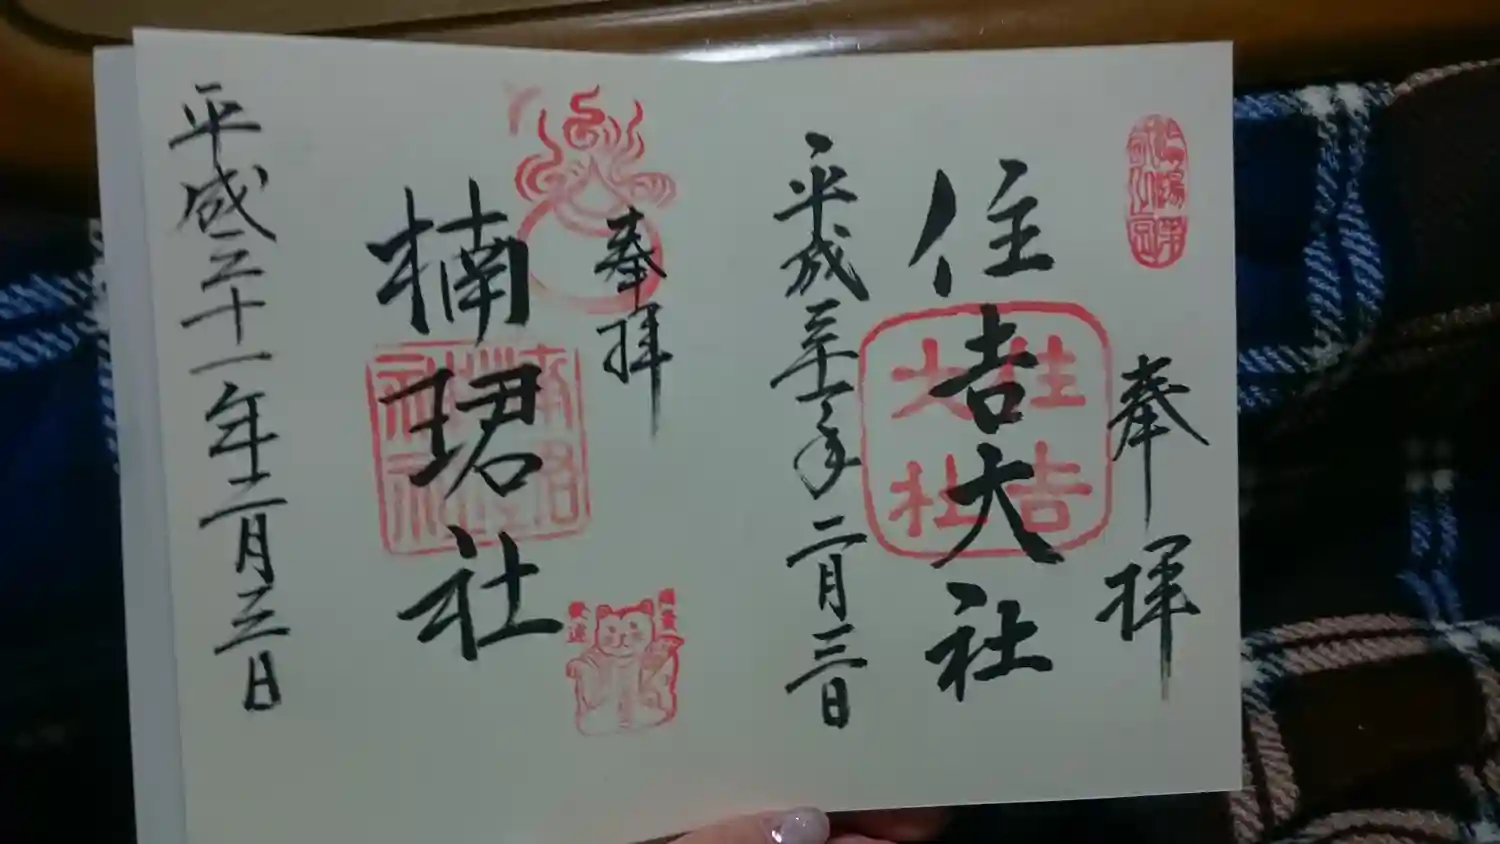 奉拝
住吉大社
住吉
大社
平成三十一年二月三日
奉拝
楠珺社
平成三十一年二月三日